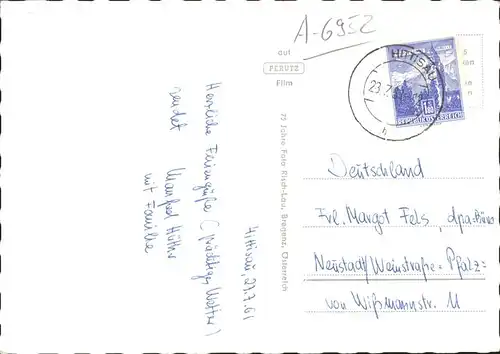 A-6952
auf
PERUTZ
Film
HITTISAU
23.7.61
h
1.80
REPUBLIK ÖSTERREICH
Hittisau, 23.7.61
Herzliche Feriengrüße (prächtiges Wetter)
sendet Manfred
mit Familie
75 Jahre Foto Risch-Lau, Bregenz, Österreich
Deutschland
Frl. Margot Fels, dpa-Büro
Neustadt/Weinstraße-Pfalz-
von Wißmannstr. 11